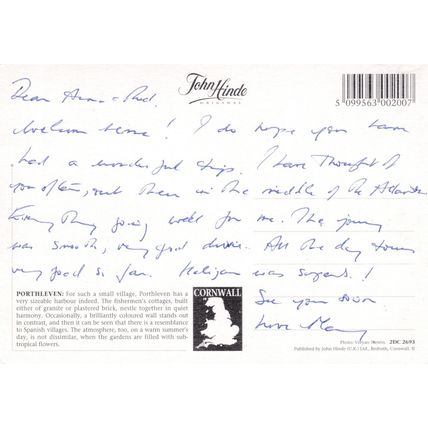 John Hinde
ORIGINAL
5 099563 002007
Dear
Welcome home! I do hope you have
had a wonderful trip. I have thought of
you often, out there in the middle of the Atlantic
Everything going well for me. The journey
was smooth, very good drive. All the day tours
very good so far. Heligan was superb!
See you soon
Love Mary
PORTHLEVEN: For such a small village, Porthleven has a
very sizeable harbour indeed. The fishermen's cottages, built
either of granite or plastered brick, nestle together in quiet
harmony. Occasionally, a brilliantly coloured wall stands out
in contrast, and then it can be seen that there is a resemblance
to Spanish villages. The atmosphere, too, on a warm summer's
day, is not dissimilar, when the gardens are filled with sub-
tropical flowers.
CORNWALL
Photo: 2DC 2693
Published by John Hinde (U.K.) Ltd., Redruth, Cornwall.